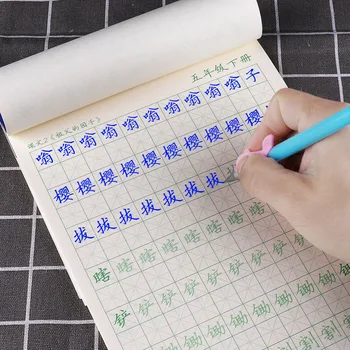 五年级下册
课文2《祖父的园子》
嗡嗡嗡嗡嗡嗡嗡嗡嗡子
樱樱樱樱樱樱樱樱樱
拔拔拔拔拔拔拔
瞎瞎瞎瞎瞎瞎瞎瞎瞎
铲铲铲铲铲铲铲铲铲
锄锄锄锄锄锄
割割